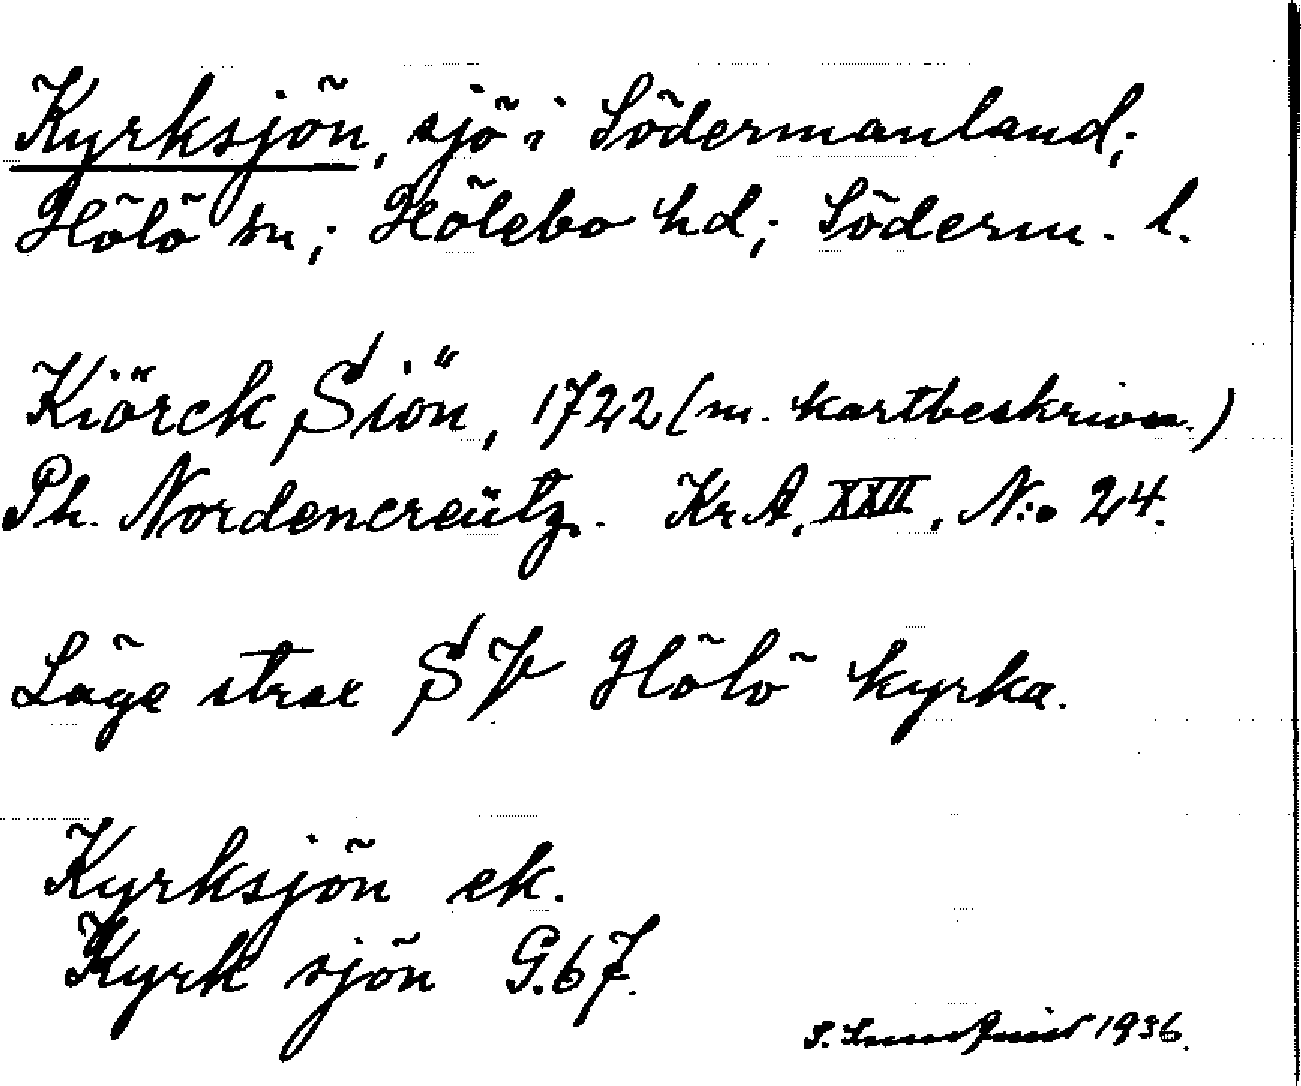 Kyrksjön, sjö i Södermanland;
Hölö sn; Hölebo hd; Söderm. l.
Kiörck Siön, 1722 (m. kartbeskrivn.)
Ph. Nordencreütz. Kr. A. XXII, N:o 24.
Läge strax SV Hölö kyrka.
Kyrksjön ek.
Kyrk sjön G. 67.
S. Lundquist 1936.